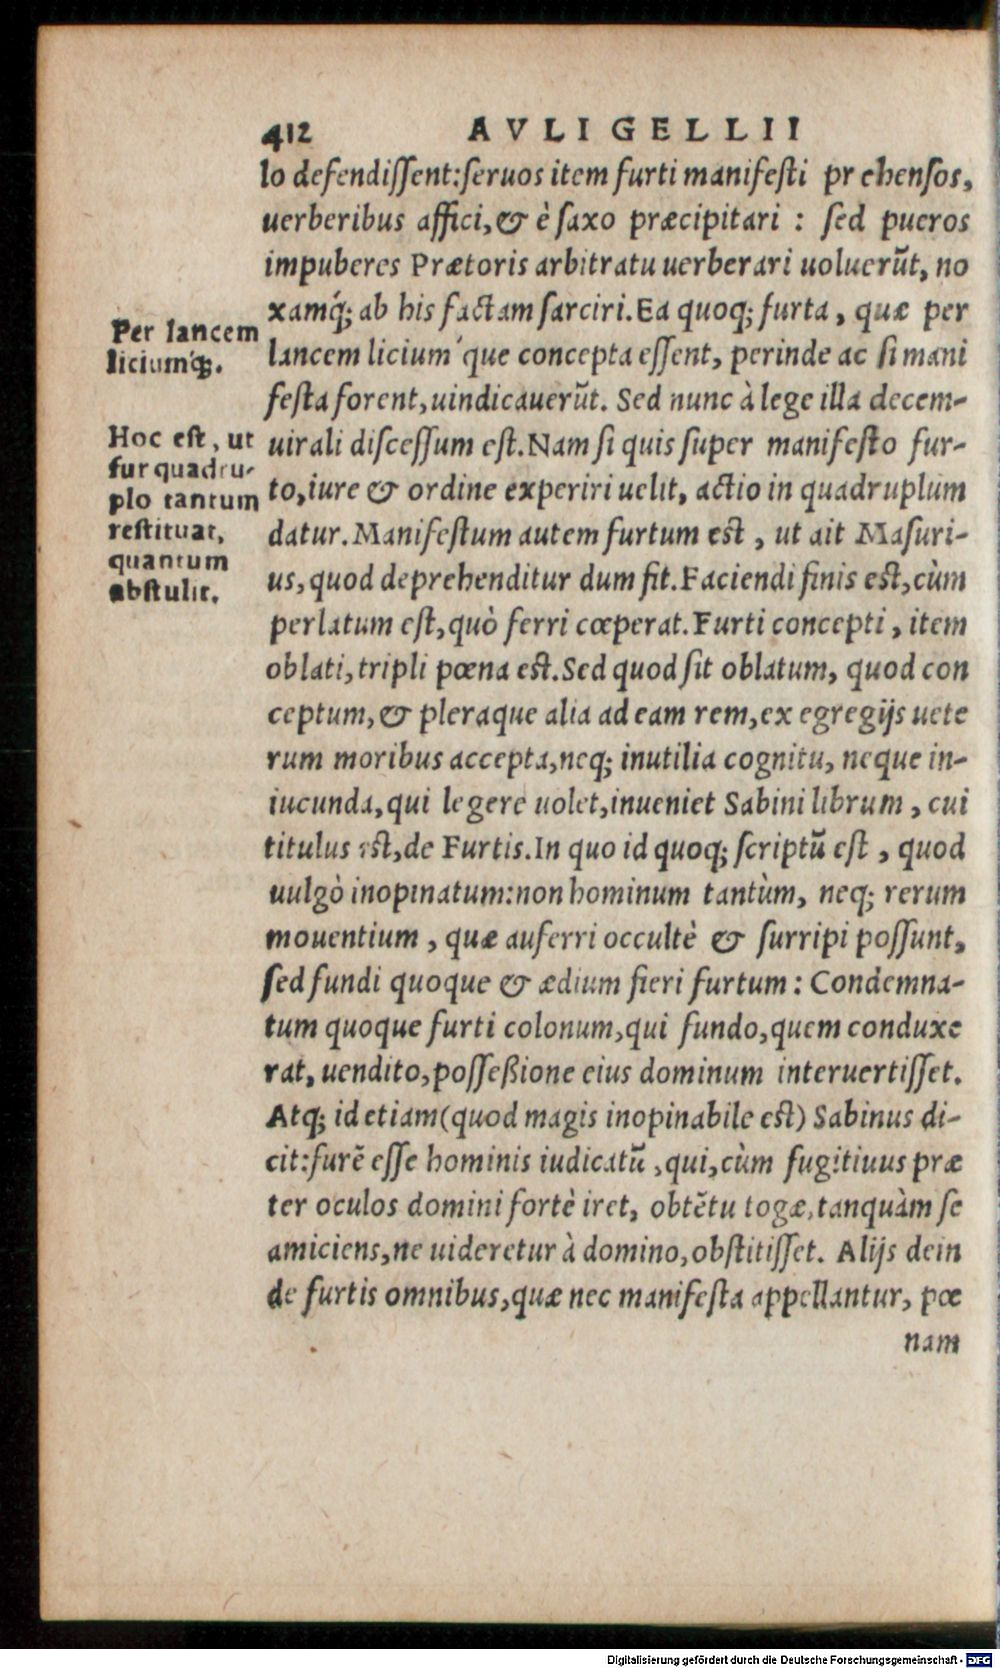 412 AVLI GELLII
lo defendiſſent:ſeruos item furti manifeſti pr ehenſos,
uerberibus affici,& è ſaxo præcipitari : ſed pueros
impuberes Prætoris arbitratu uerberari uoluerũt, no
xamq́; ab his factam ſarciri.Ea quoq; furta, quæ per
lancem licium ́que concepta eſſent, perinde ac ſi mani
feſta forent,uindicauerũt. Sed nunc à lege illa decem-
uirali diſceſſum eſt.Nam ſi quis ſuper manifeſto fur-
to,iure & ordine experiri uelit, actio in quadruplum
datur.Manifeſtum autem furtum est, ut ait Maſuri-
us,quod deprehenditur dum fit.Faciendi finis est,cùm
perlatum eſt,quò ferri cœperat.Furti concepti, item
oblati,tripli pœna est.Sed quod ſit oblatum, quod con
ceptum,& pleraque alia ad eam rem,ex egregijs uete
rum moribus accepta,neq; inutilia cognitu, neque in-
iucunda,qui legere uolet,inueniet Sabini librum, cui
titulus est,de Furtis.In quo id quoq; ſcriptũ eſt, quod
uulgò inopinatum:non hominum tantùm, neq; rerum
mouentium, quæ auferri occultè & ſurripi poſſunt,
ſed fundi quoque & ædium fieri furtum: Condemna-
tum quoque furti colonum,qui fundo,quem conduxe
rat, uendito,poſſeßione eius dominum interuertiſſet.
Atq; id etiam(quod magis inopinabile est) Sabinus di-
cit:furẽ eſſe hominis iudicatũ ,qui,cùm fugitiuus præ
ter oculos domini fortè iret, obtẽtu togæ,tanquàm ſe
amiciens,ne uideretur à domino,obſtitiſſet. Alijs dein
de furtis omnibus,quæ nec manifeſta appellantur, pœ
nam
Per lancem
liciumq́;.
Hoc eſt, ut
fur quadru-
plo tantum
reſtituat,
quantum
abſtulit.
Digitalisierung gefördert durch die Deutsche Forschungsgemeinschaft - DFG